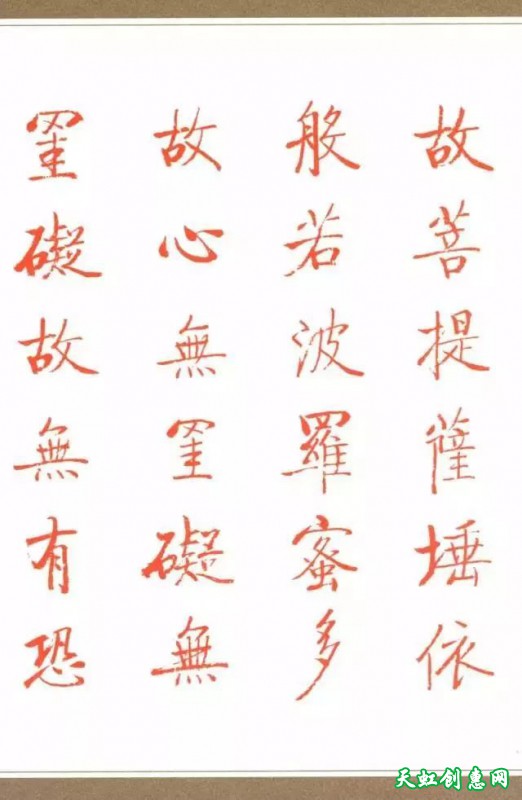 故菩提薩埵依
般若波羅蜜多
故心無罣礙無
罣礙故無有恐
天虹创惠网